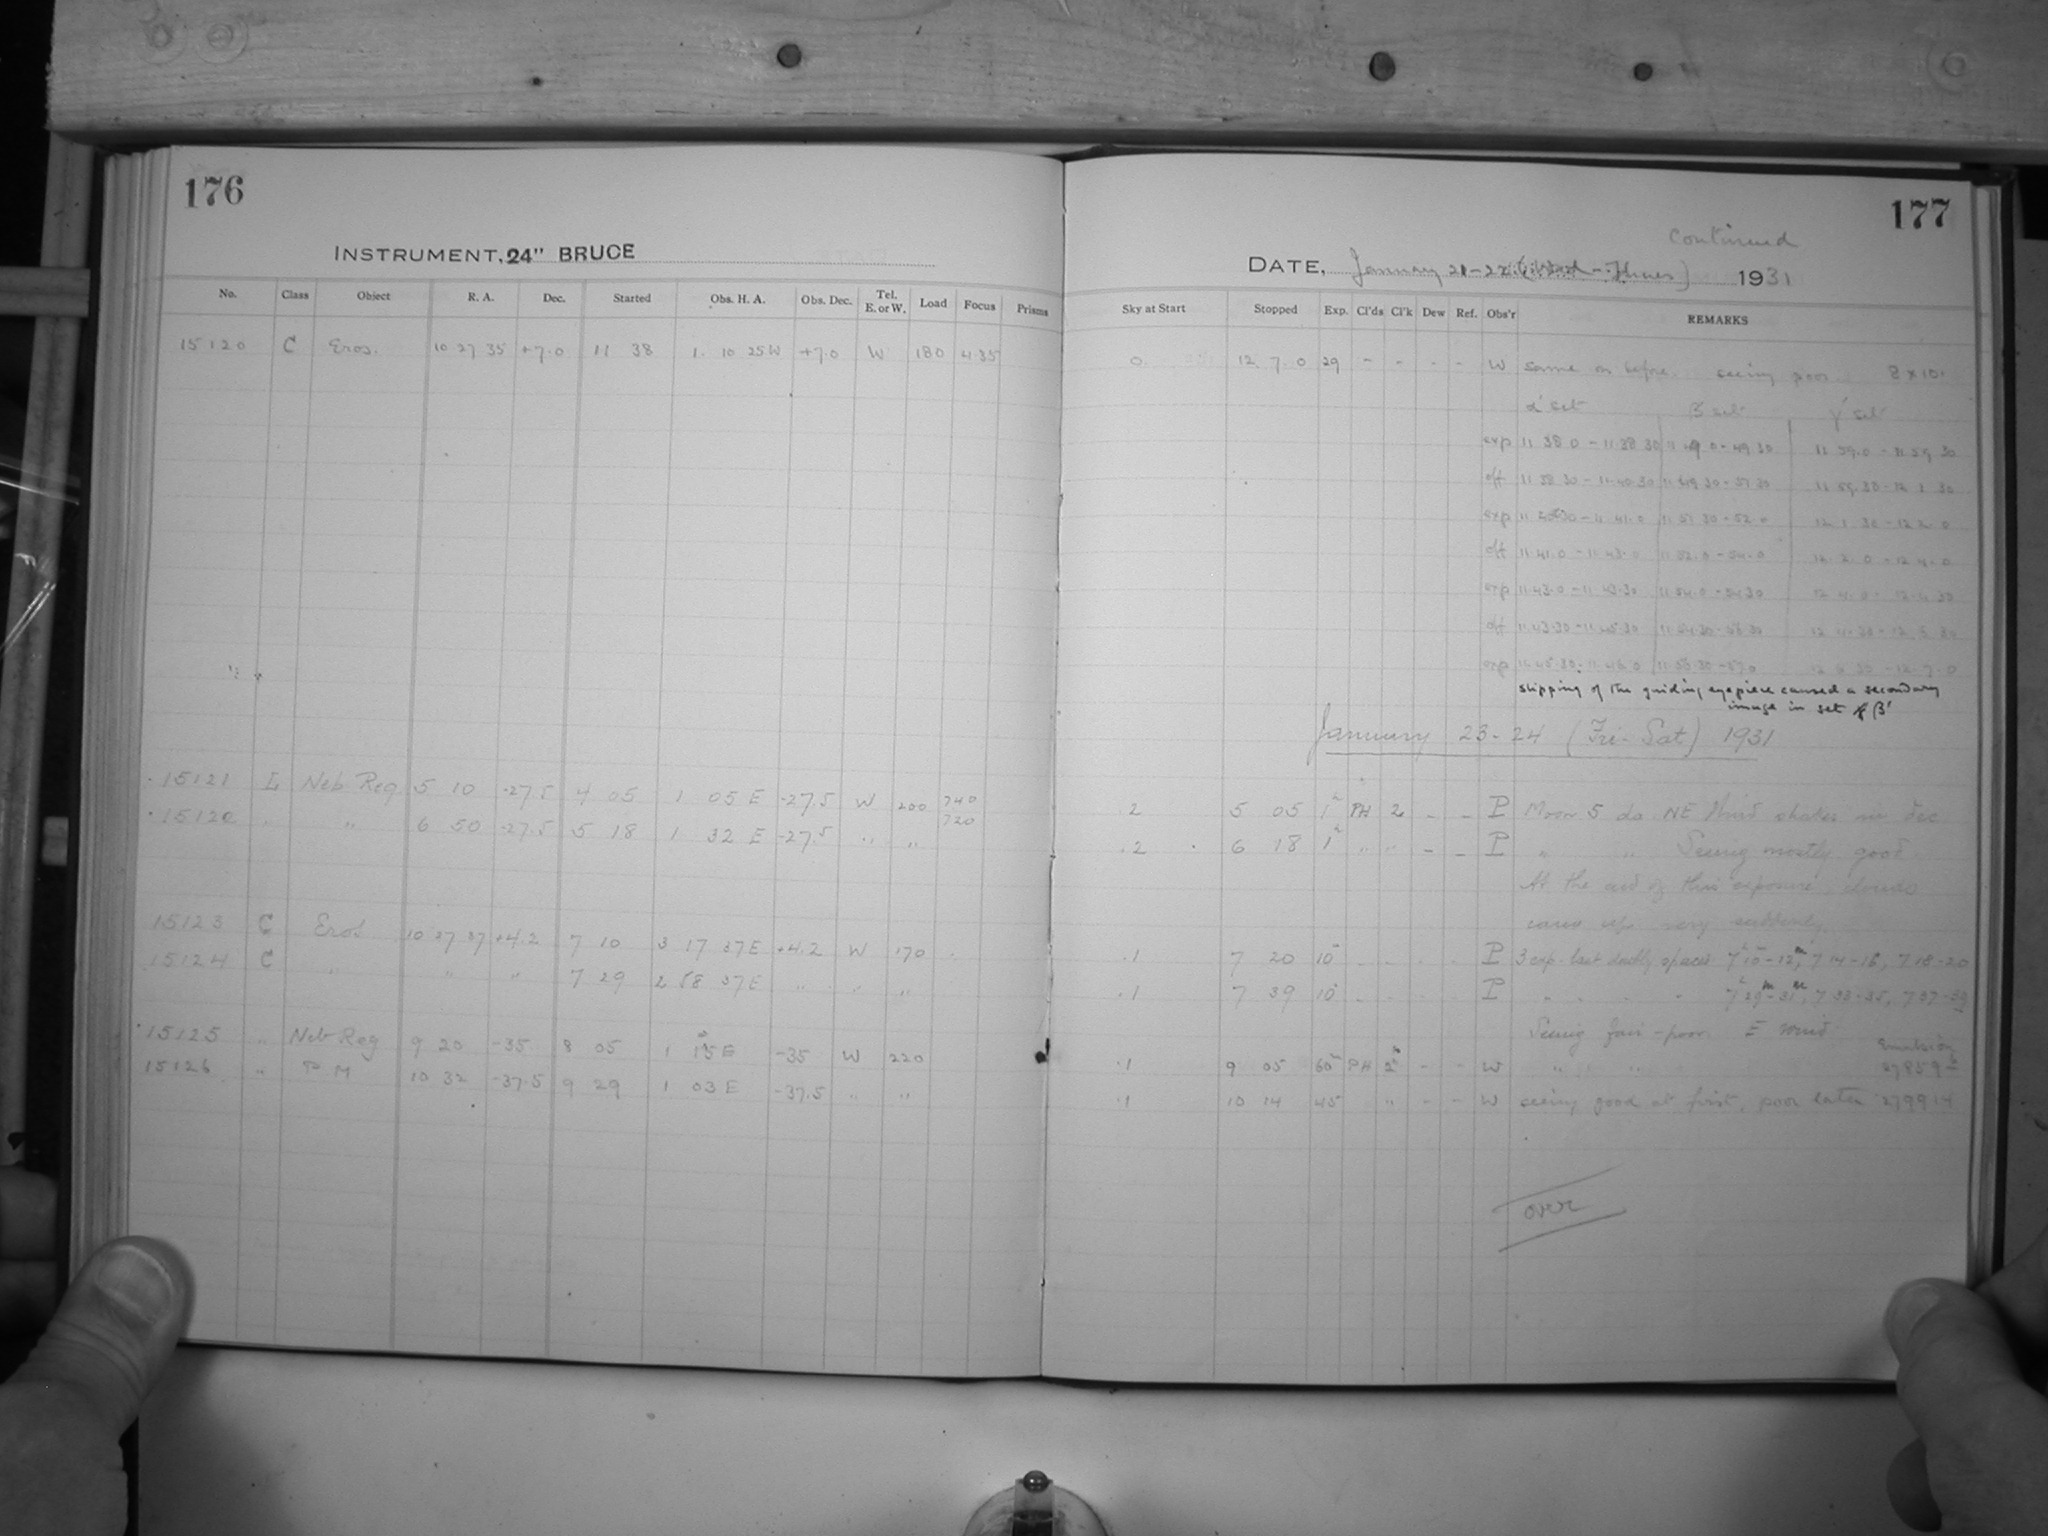 176
INSTRUMENT, 24" BRUCE
No. Class Object R. A. Dec. Started Obs. H. A. Obs. Dec. Tel. E. or W. Load Focus Prisms
15120 C Eros. 10 27 35 +7.0 11 38 1. 10 25 W +7.0 W 180 4.35
15121 L Neb Reg 5 10 -27.5 4 05 1 05 E -27.5 W 200 740
1512 " " 6 50 -27.5 5 18 1 32 E -27.5 " " 720
15123 C Eros 10 27 37 +4.2 7 10 3 17 37 E +4.2 W 170
15124 C " " " 7 29 2 58 37 E " " "
15125 " Neb Reg 9 20 -35 8 05 1 15 E -35 W 220
15126 " M 10 32 -37.5 9 29 1 03 E -37.5 " "
177
continued
DATE, January 21-22 (Wed - Thurs) 1931
Sky at Start Stopped Exp. Cl'ds Cl'k Dew Ref. Obs'r REMARKS
0. 12 7 0 29 - - - - W same as before. seeing poor. 8 x 10
α' set β' set γ' set
exp 11 38 0 - 11 38 30 11 49 0 - 49 30 11 59.0 - 11 59 30
off 11 38 30 - 11 40 30 11 49 30 - 51 30 11 59 30 - 12 1 30
exp 11 40 30 - 11 41.0 11 51 30 - 52.0 12 1 30 - 12 2 0
off 11 41.0 - 11 43.0 11 52.0 - 54.0 12 2.0 - 12 4.0
exp 11 43.0 - 11 43.30 11 54.0 - 54 30 12 4.0 - 12 4 30
off 11 43.30 - 11 45.30 11 54 30 - 56 30 12 4.30 - 12 6 30
exp 11 45 30 - 11 46.0 11 56 30 - 57.0 12 6 30 - 12 7.0
slipping of the guiding eyepiece caused a secondary
image in set of β'
January 23-24 (Fri-Sat) 1931
.2 5 05 1h PH 2 - - P Moon 5 da NE Wind shakes in dec
.2 6 18 1h " " - - P " " Seeing mostly good
At the end of this exposure, clouds
came up very suddenly.
.1 7 20 10 P 3 exp. last doubly spaced 7h 10 - 12m, 7 14-16, 7 18-20
.1 7 39 10 P " " " " 7h 29m - 31m, 7 33-35, 7 37-39
Seeing fair - poor. E wind
Emulsion
.1 9 05 60 PH 2 - - W " " " 27859
.1 10 14 45 " - - W seeing good at first, poor later 279914
over